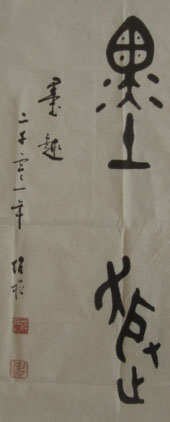 墨趣
墨趣
二千零一年